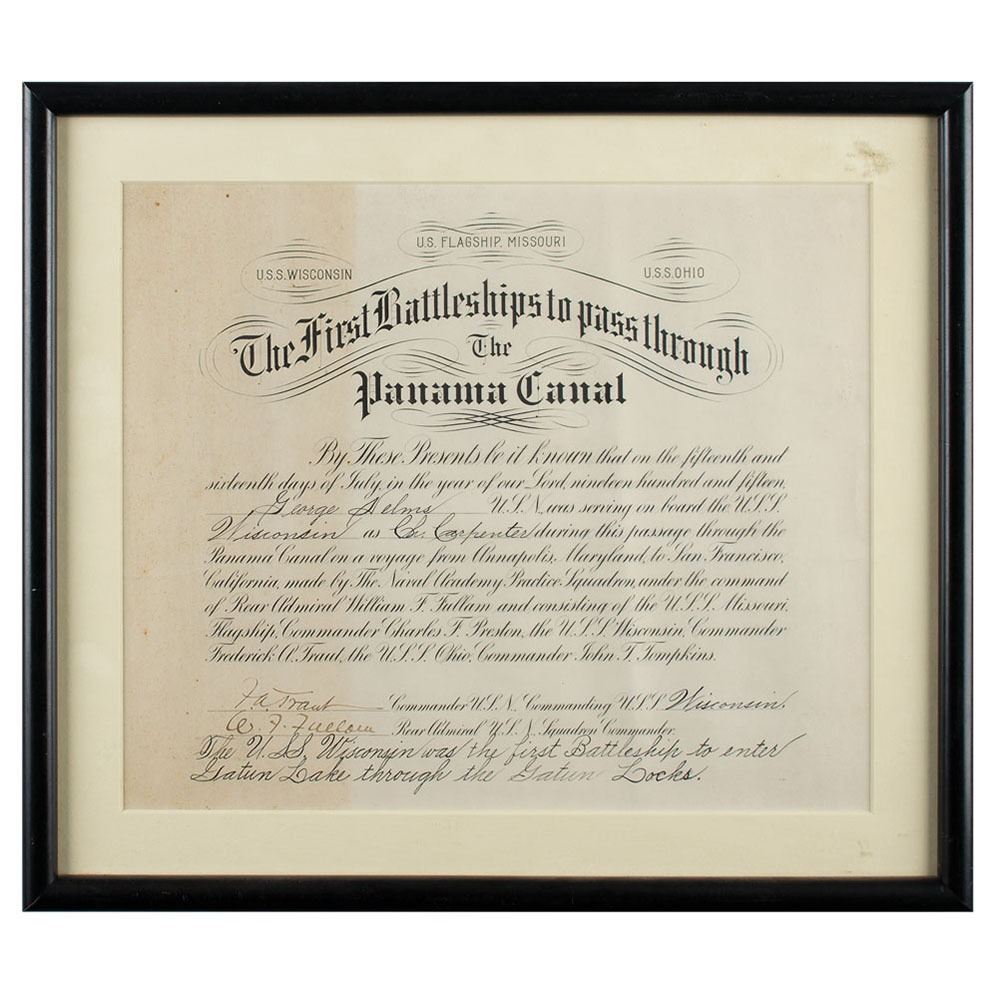 U.S. FLAGSHIP, MISSOURI
U.S.S. WISCONSIN
U.S.S. OHIO
The First Battleships to pass through
The
Panama Canal
By These Presents be it known that on the fifteenth and
sixteenth days of July, in the year of our Lord, nineteen hundred and fifteen,
George Helms U.S.N. was serving on board the U.S.S.
Wisconsin as Ch. Carpenter during this passage through the
Panama Canal on a voyage from Annapolis, Maryland, to San Francisco,
California, made by The Naval Academy Practice Squadron, under the command
of Rear Admiral William F. Fullam and consisting of the U.S.S. Missouri,
Flagship, Commander Charles F. Preston, the U.S.S. Wisconsin, Commander
Frederick A. Traut, the U.S.S. Ohio, Commander John T. Tompkins.
F.A. Traut Commander U.S.N. Commanding U.S.S. Wisconsin.
W. F. Fullam Rear Admiral U.S.N. Squadron Commander.
The U.S.S. Wisconsin was the first Battleship to enter
Gatun Lake through the Gatun Locks.